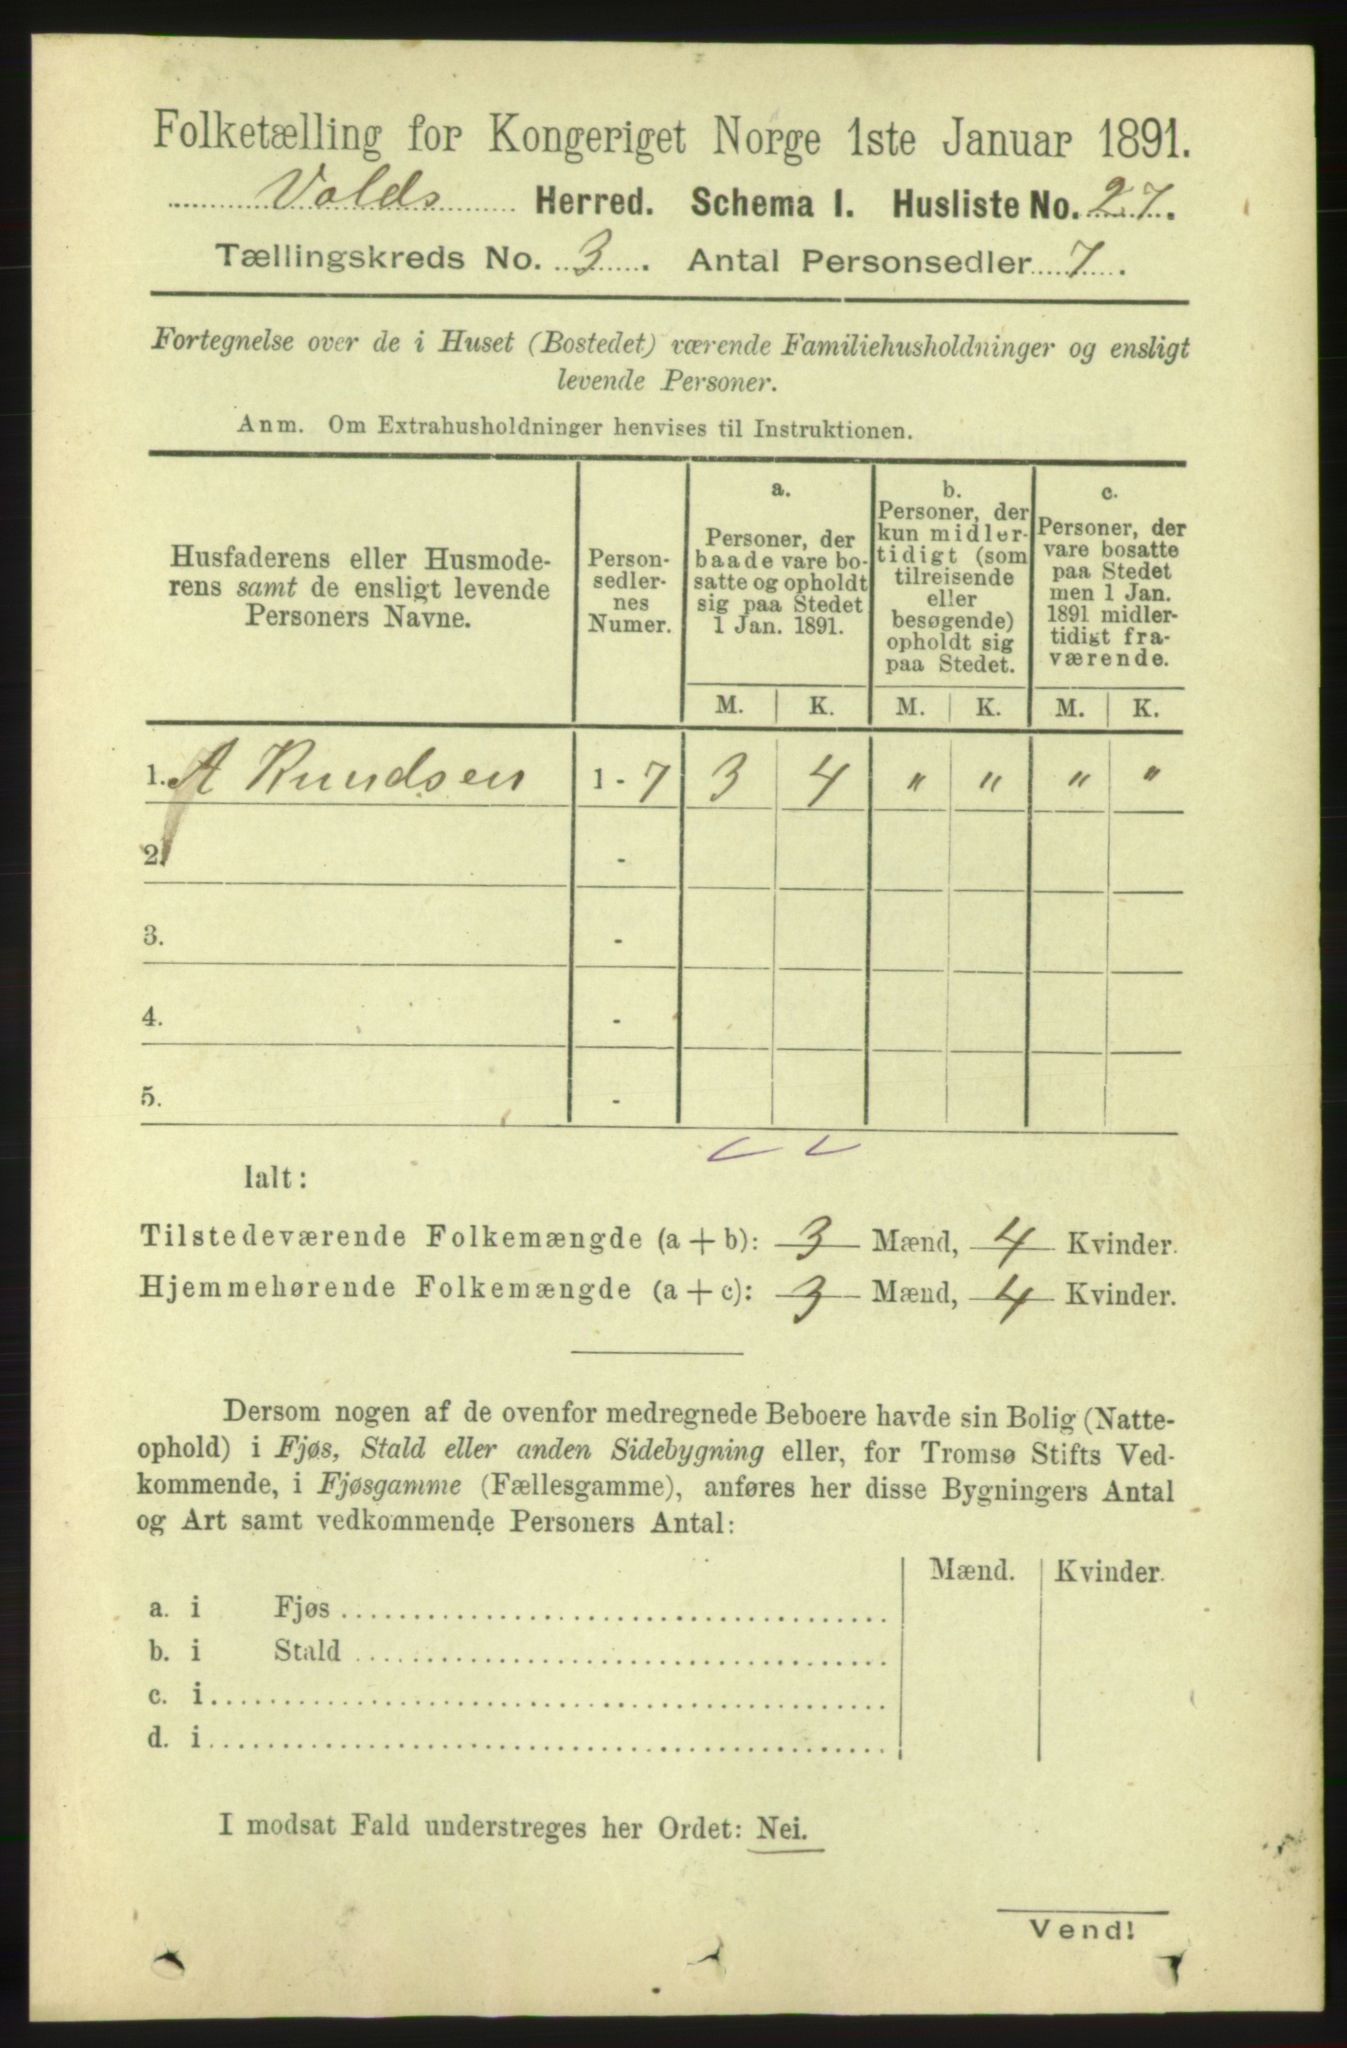 Folketælling for Kongeriget Norge 1ste Januar 1891.
Volds Herred. Schema I. Husliste No. 27.
Tællingskreds No. 3. Antal Personsedler 7.
Fortegnelse over de i Huset (Bostedet) værende Familiehusholdninger og ensligt
levende Personer.
Anm. Om Extrahusholdninger henvises til Instruktionen.
Husfaderens eller Husmode-
rens samt de ensligt levende
Personers Navne.
Person-
sedler-
nes
Numer.
a.
Personer, der
baade vare bo-
satte og opholdt
sig paa Stedet
1 Jan. 1891.
b.
Personer, der
kun midler-
tidigt (som
tilreisende
eller
besøgende)
opholdt sig
paa Stedet.
c.
Personer, der
vare bosatte
paa Stedet
men 1 Jan.
1891 midler-
tidigt fra-
værende.
M. K. M. K. M. K.
1. A Knudsen 1 - 7 3 4 " " " "
2. -
3. -
4. -
5. -
Ialt:
Tilstedeværende Folkemængde (a + b): 3 Mænd, 4 Kvinder.
Hjemmehørende Folkemængde (a + c): 3 Mænd, 4 Kvinder.
Dersom nogen af de ovenfor medregnede Beboere havde sin Bolig (Natte-
ophold) i Fjøs, Stald eller anden Sidebygning eller, for Tromsø Stifts Ved-
kommende, i Fjøsgamme (Fællesgamme), anføres her disse Bygningers Antal
og Art samt vedkommende Personers Antal:
Mænd. Kvinder.
a. i Fjøs
b. i Stald
c. i
d. i
I modsat Fald understreges her Ordet: Nei.
Vend!